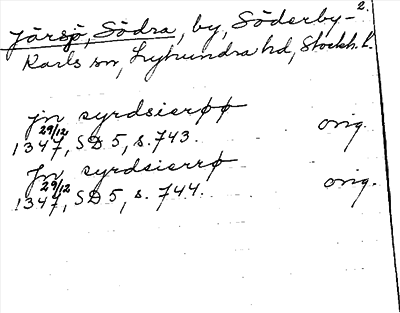 2.
Järsjö, Södra, by, Söderby-
Karls sn, Lyhundra hd, Stockh. l.
jn syrdsierøø
29/12
1347, SD 5, s. 743. orig.
jn syrdsierrø
29/12
1347, SD 5, s. 744. orig.